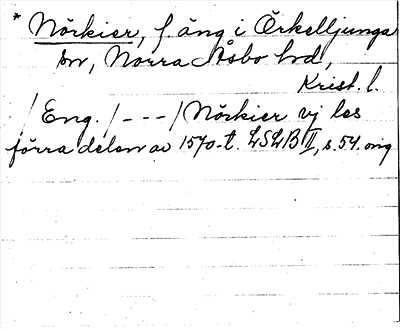 * Nörkier, f. äng i Örkelljunga
sn, Norra Åsbo hd,
Krist. l.
/Eng./ - - - /Nörkier vj les
förra delen av 1570-t. LSLB II, s. 54. orig